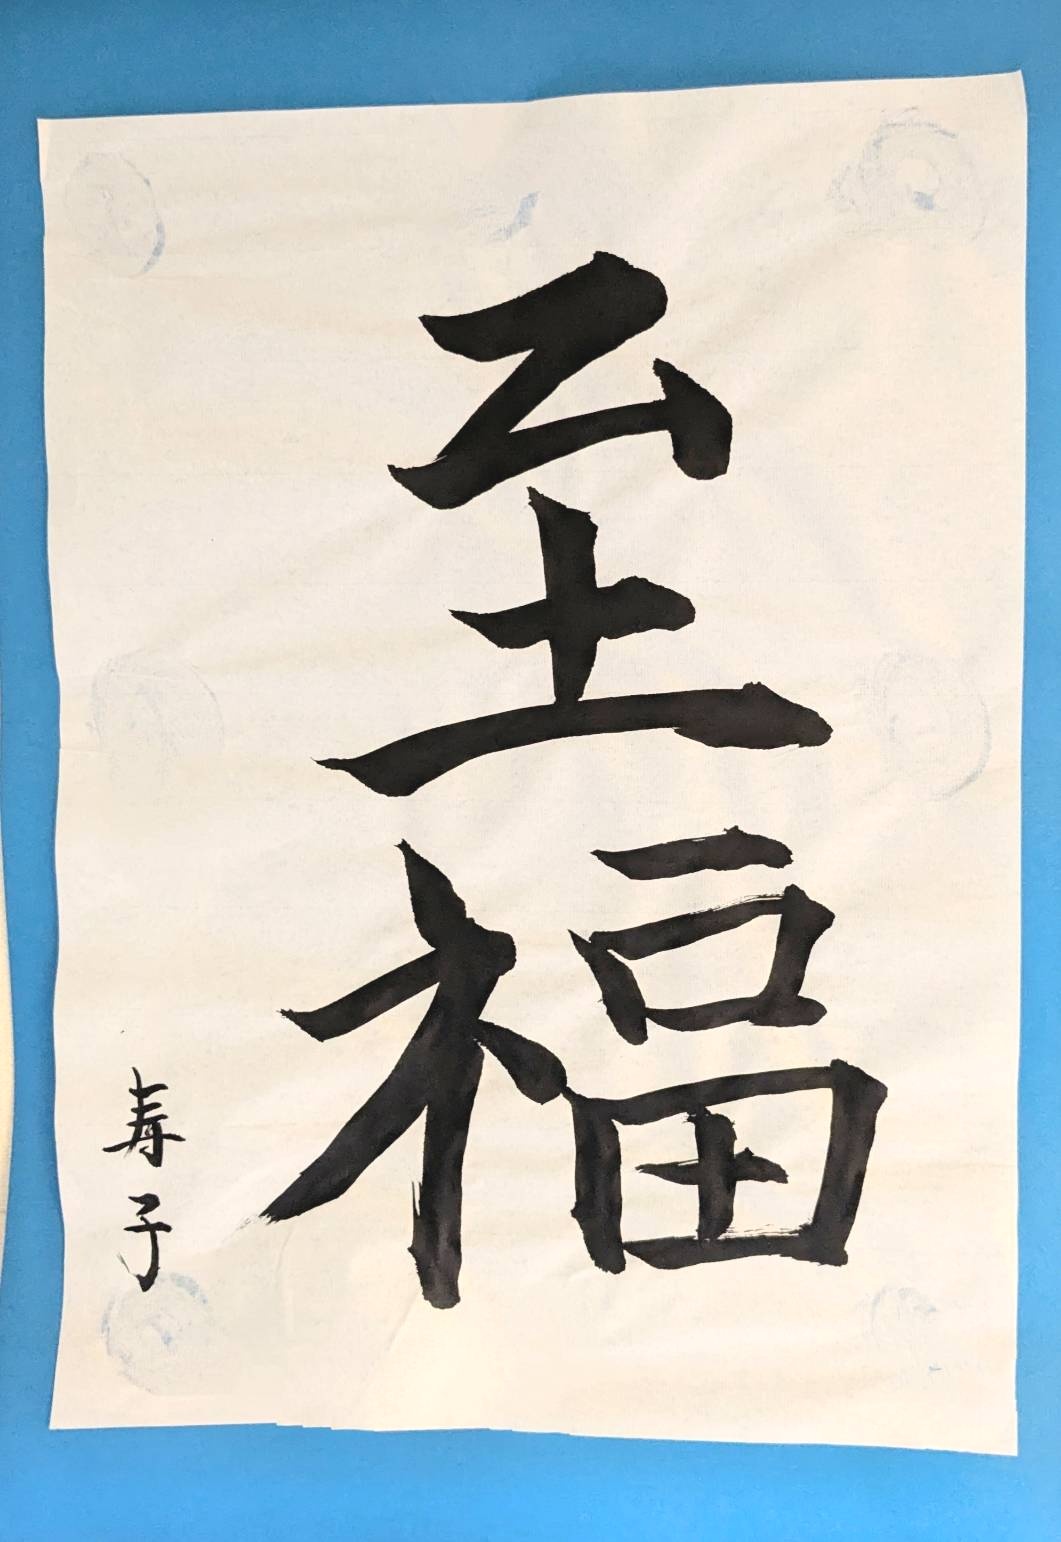 至福
寿子